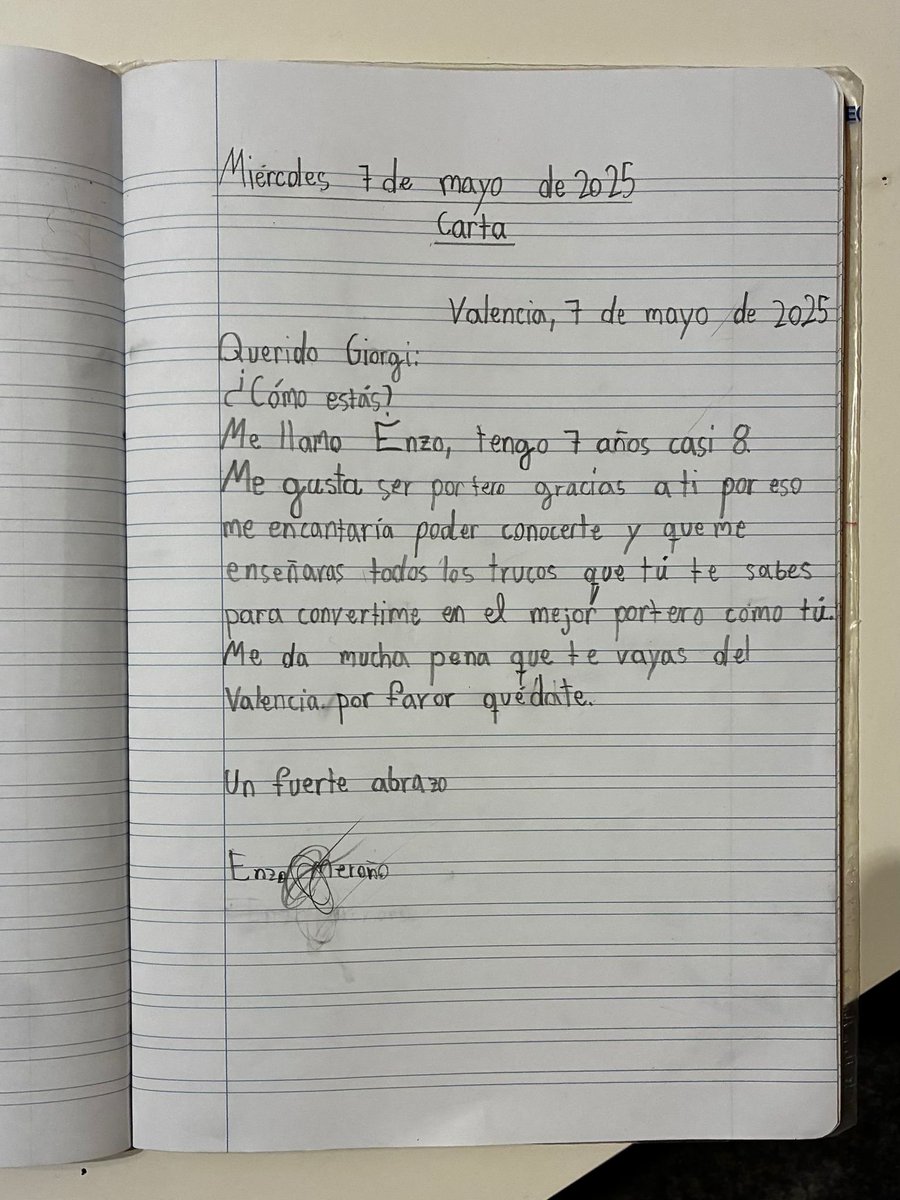 Miércoles 7 de mayo de 2025
Carta
Valencia, 7 de mayo de 2025
Querido Giorgi:
¿Cómo estás?
Me llamo Enzo, tengo 7 años casi 8.
Me gusta ser portero gracias a ti por eso
me encantaría poder conocerte y que me
enseñaras todos los trucos que tú te sabes
para convertime en el mejor portero como tú.
Me da mucha pena que te vayas del
Valencia. por favor quédate.
Un fuerte abrazo
Enzo Meroño